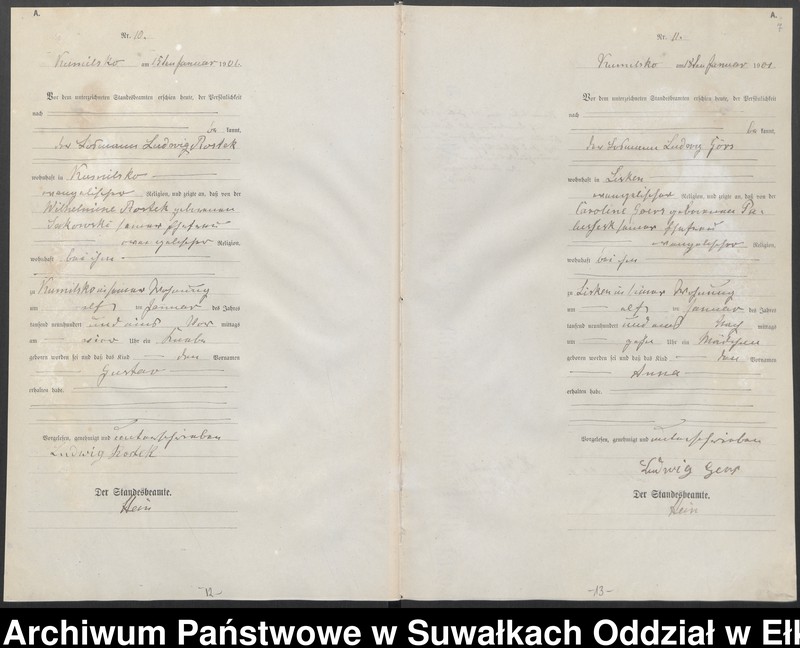 A.
Nr. 10.
Kumilsko am 15ten Januar 1901.
Vor dem unterzeichneten Standesbeamten erschien heute, der Persönlichkeit
nach
be kannt,
der Losmann Ludwig Rostek
wohnhaft in Kumilsko
evangelischer Religion, und zeigte an, daß von der
Wilhelmine Rostek geborenen
Sakowski seiner Ehefrau
evangelischer Religion,
wohnhaft bei ihm
zu Kumilsko in seiner Wohnung
am elf ten Januar des Jahres
tausend neunhundert und eins Vor mittags
um vier Uhr ein Knabe
geboren worden sei und daß das Kind den Vornamen
Gustav
erhalten habe.
Vorgelesen, genehmigt und unterschrieben
Ludwig Rostek
Der Standesbeamte.
Hein
12
A.
7
Nr. 11.
Kumilsko am Januar 1901.
Vor dem unterzeichneten Standesbeamten erschien heute, der Persönlichkeit
nach
be kannt,
der Losmann Ludwig Görs
wohnhaft in Lisken
evangelischer Religion, und zeigte an, daß von der
Caroline Goers geborenen
seiner Ehefrau
evangelischer Religion,
wohnhaft bei ihm
zu Lisken in seiner Wohnung
am elf ten Januar des Jahres
tausend neunhundert und eins Nach mittags
um zehn Uhr ein Mädchen
geboren worden sei und daß das Kind den Vornamen
Anna
erhalten habe.
Vorgelesen, genehmigt und unterschrieben
Ludwig Gers
Der Standesbeamte.
Hein
-13-
Archiwum Państwowe w Suwałkach Oddział w Ełk